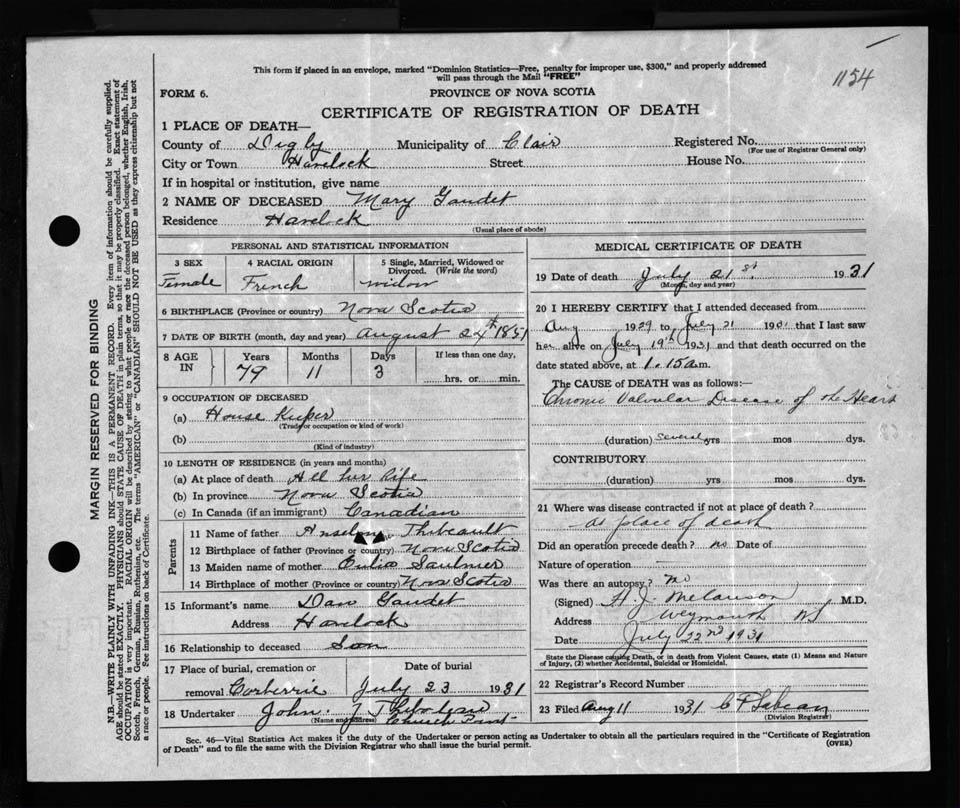 This form if placed in an envelope, marked "Dominion Statistics—Free, penalty for improper use, $300," and properly addressed
will pass through the Mail "FREE"
1154
FORM 6.
PROVINCE OF NOVA SCOTIA
CERTIFICATE OF REGISTRATION OF DEATH
1 PLACE OF DEATH—
County of Digby Municipality of Clair Registered No.
(For use of Registrar General only)
City or Town Havelock Street House No.
If in hospital or institution, give name
2 NAME OF DECEASED Mary Gaudet
Residence Havelock
(Usual place of abode)
PERSONAL AND STATISTICAL INFORMATION
3 SEX 4 RACIAL ORIGIN 5 Single, Married, Widowed or
Divorced. (Write the word)
Female French widow
6 BIRTHPLACE (Province or country) Nova Scotia
7 DATE OF BIRTH (month, day and year) August 24th 1851
8 AGE IN Years Months Days If less than one day,
79 11 3 hrs. or min.
9 OCCUPATION OF DECEASED
(a) House Keeper
(Trade, occupation or kind of work)
(b)
(Kind of industry)
10 LENGTH OF RESIDENCE (in years and months)
(a) At place of death All her life
(b) In province Nova Scotia
(c) In Canada (if an immigrant) Canadian
Parents
11 Name of father Thibeault
12 Birthplace of father (Province or country) Nova Scotia
13 Maiden name of mother Saulnier
14 Birthplace of mother (Province or country) Nova Scotia
15 Informant's name Dan Gaudet
Address Havelock
16 Relationship to deceased Son
17 Place of burial, cremation or Date of burial
removal Corberrie July 23 1931
18 Undertaker John J Thibodeau
(Name and address) Church Point
MEDICAL CERTIFICATE OF DEATH
19 Date of death July 21st 1931
(Month, day and year)
20 I HEREBY CERTIFY that I attended deceased from
Aug 1929 to July 21 1931 that I last saw
her alive on July 19th 1931 and that death occurred on the
date stated above, at 1.15 a.m.
The CAUSE OF DEATH was as follows:—
Chronic Valvular Disease of the Heart
(duration) several yrs mos dys.
CONTRIBUTORY
(duration) yrs mos. dys.
21 Where was disease contracted if not at place of death?
at place of death
Did an operation precede death? no Date of
Nature of operation
Was there an autopsy? no
(Signed) H. J. Melanson M.D.
Address Weymouth NS
Date July 22nd 1931
State the Disease causing Death, or in death from Violent Causes, state (1) Means and Nature
of Injury, (2) whether Accidental, Suicidal or Homicidal.
22 Registrar's Record Number
23 Filed Aug 11 1931 C P Sabean
(Division Registrar)
Sec. 46—Vital Statistics Act makes it the duty of the Undertaker or person acting as Undertaker to obtain all the particulars required in the "Certificate of Registration
of Death" and to file the same with the Division Registrar who shall issue the burial permit. (OVER)
MARGIN RESERVED FOR BINDING
N.B.—WRITE PLAINLY WITH UNFADING INK—THIS IS A PERMANENT RECORD. Every item of information should be carefully supplied.
AGE should be stated EXACTLY. PHYSICIANS should STATE CAUSE OF DEATH in plain terms, so that it may be properly classified. Exact statement of
OCCUPATION is very important. RACIAL ORIGIN will be described by stating to what people or race the deceased person belonged, whether English, Irish,
Scotch, French, German, Russian, Ruthenian, etc. The terms "AMERICAN" or "CANADIAN" SHOULD NOT BE USED as they express citizenship but not
a race or people. See instructions on back of Certificate.